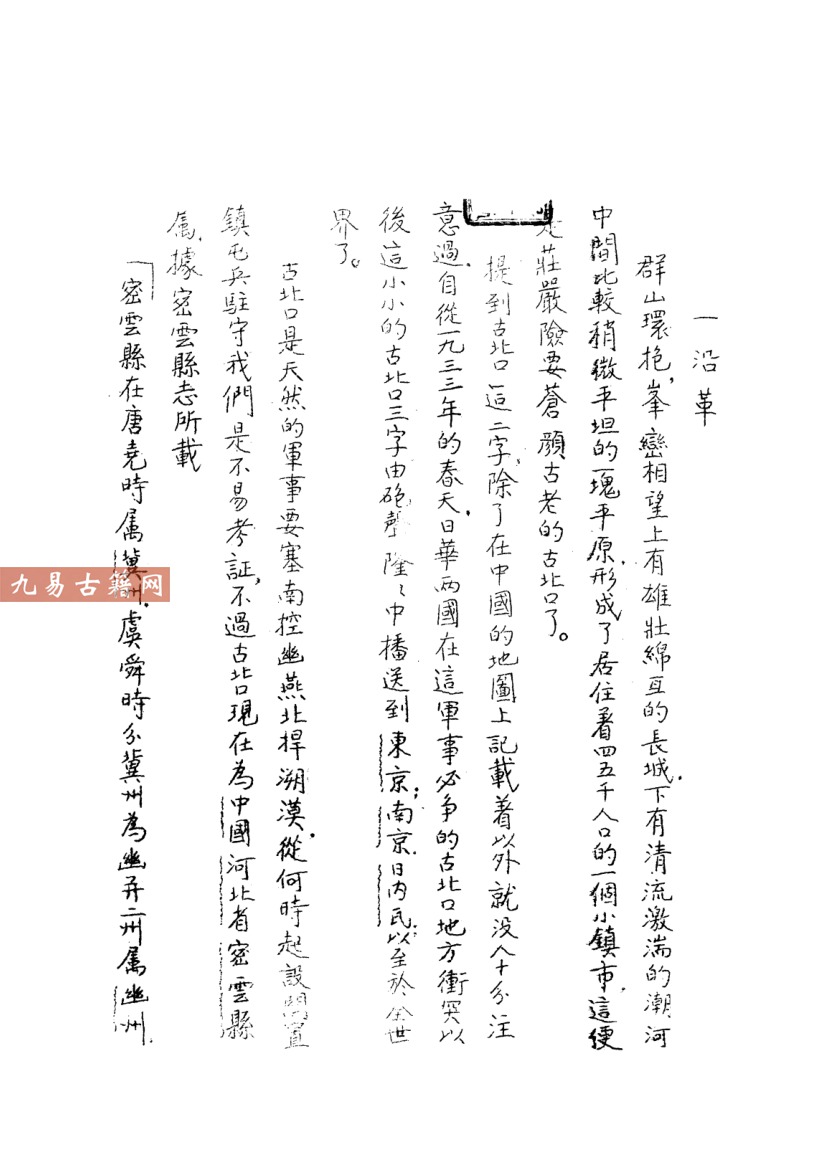 一沿革
群山環抱，峯巒相望上有雄壯綿亙的長城，下有清流激湍的潮河
中間比較稍微平坦的一塊平原，形成了居住着四五千人口的一個小鎮市，這便
是莊嚴險要蒼顏古老的古北口了。
提到古北口這二字，除了在中國的地圖上記載着以外就没人十分注
意過，自從一九三三年的春天，日華兩國在這軍事必争的古北口地方衝突以
後這小小的古北口三字由砲聲隆々中播送到東京；南京，日内瓦；以至於全世
界了。
古北口是天然的軍事要塞南控幽燕北捍溯漠，從何時起設關置
鎮屯兵駐守我們是不易考証，不過古北口現在為中國河北省密雲縣
属，據密雲縣志所載
「密雲縣在唐堯時属冀州，虞舜時分冀州為幽并二州属幽州，
九易古籍网